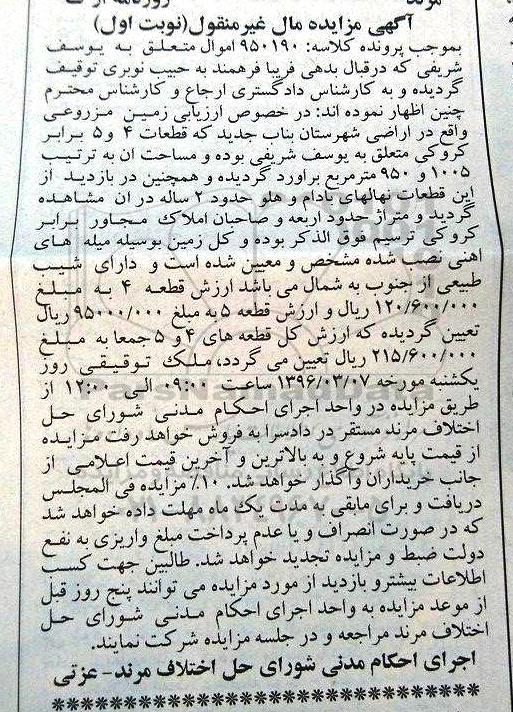 مرند
آگهی مزایده مال غیرمنقول(نوبت اول)
بموجب پرونده کلاسه: ۹۵۰۱۹۰ اموال متعلق به یوسف
شریفی که درقبال بدهی فریبا فرهمند به حبیب نوبری توقیف
گردیده و به کارشناس دادگستری ارجاع و کارشناس محترم
چنین اظهار نموده اند: در خصوص ارزیابی زمین مزروعی
واقع در اراضی شهرستان بناب جدید که قطعات ۴ و۵ برابر
کروکی متعلق به یوسف شریفی بوده و مساحت ان به ترتیب
۱۰۰۵ و ۹۵۰ مترمربع براورد گردیده و همچنین در بازدید از
این قطعات نهالهای بادام و هلو حدود ۲ ساله در ان مشاهده
گردید و متراژ حدود اربعه و صاحبان املاک مجاور برابر
کروکی ترسیم فوق الذکر بوده و کل زمین بوسیله میله های
اهنی نصب شده مشخص و معین شده است و دارای شیب
طبیعی از جنوب به شمال می باشد ارزش قطعه ۴ به مبلغ
۱۲۰/۶۰۰/۰۰۰ ریال و ارزش قطعه ۵ به مبلغ ۹۵۰۰۰/۰۰۰ ریال
تعیین گردیده که ارزش کل قطعه های ۴ و ۵ جمعا به مبلغ
۲۱۵/۶۰۰/۰۰۰ ریال تعیین می گردد، ملک توقیفی روز
یکشنبه مورخه ۱۳۹۶/۰۳/۰۷ ساعت ۰۹:۰۰ الی ۱۲:۰۰ از
طریق مزایده در واحد اجرای احکام مدنی شورای حل
اختلاف مرند مستقر در دادسرا به فروش خواهد رفت مزایده
از قیمت پایه شروع و به بالاترین و آخرین قیمت اعلامی از
جانب خریداران واگذار خواهد شد. ۱۰٪ مزایده فی المجلس
دریافت و برای مابقی به مدت یک ماه مهلت داده خواهد شد
که در صورت انصراف و یا عدم پرداخت مبلغ واریزی به نفع
دولت ضبط و مزایده تجدید خواهد شد. طالبین جهت کسب
اطلاعات بیشترو بازدید از مورد مزایده می توانند پنج روز قبل
از موعد مزایده به واحد اجرای احکام مدنی شورای حل
اختلاف مرند مراجعه و در جلسه مزایده شرکت نمایند.
اجرای احکام مدنی شورای حل اختلاف مرند- عزتی